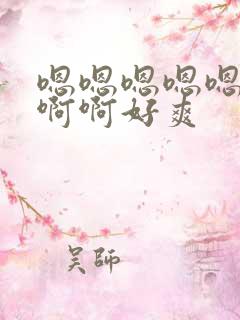 嗯嗯嗯嗯嗯
啊啊好爽
吴师